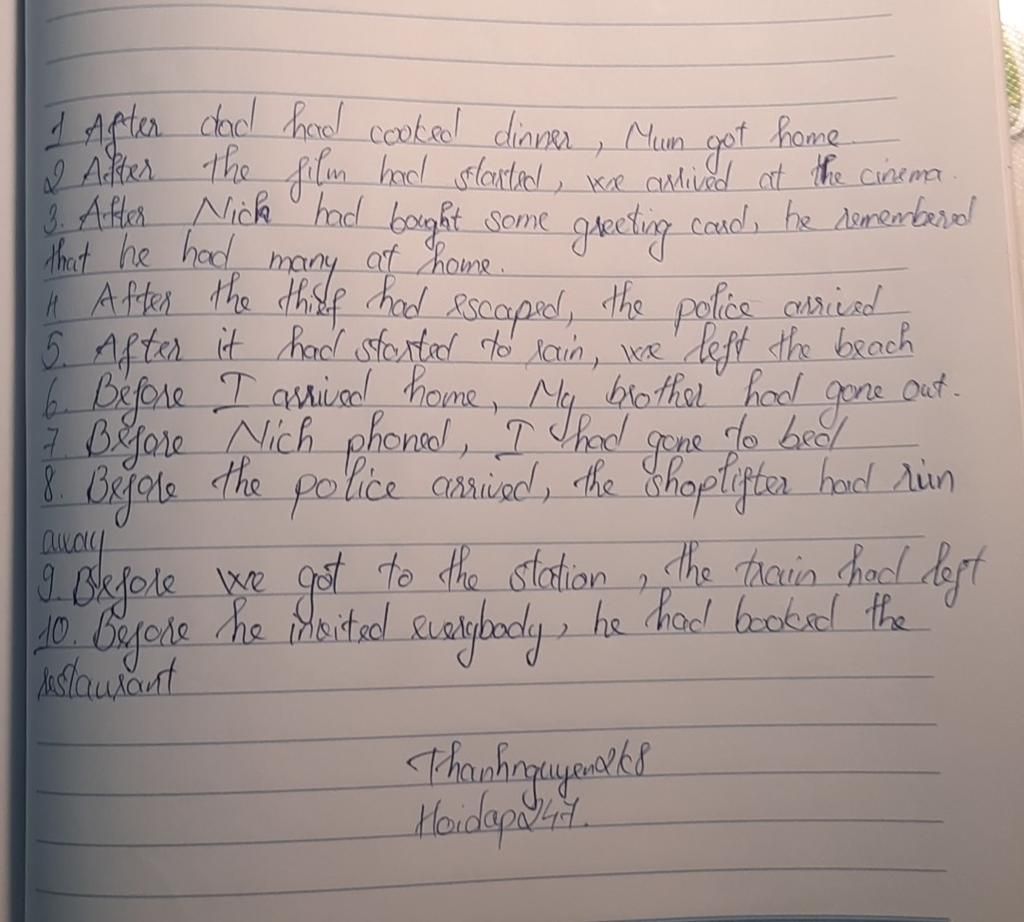 1 After dad had cooked dinner, Mum got home.
2 After the film had started, we arrived at the cinema.
3. After Nick had bought some greeting card, he remembered
that he had many at home.
4 After the thief had escaped, the police arrived
5. After it had started to rain, we left the beach
6. Before I arrived home, My brother had gone out.
7. Before Nich phoned, I had gone to bed
8. Before the police arrived, the shoplifter had run
away
9. Before we got to the station, the train had left
10. Before he invited everybody, he had booked the
restaurant
Thanhnguyen2k8
Hoidap247.